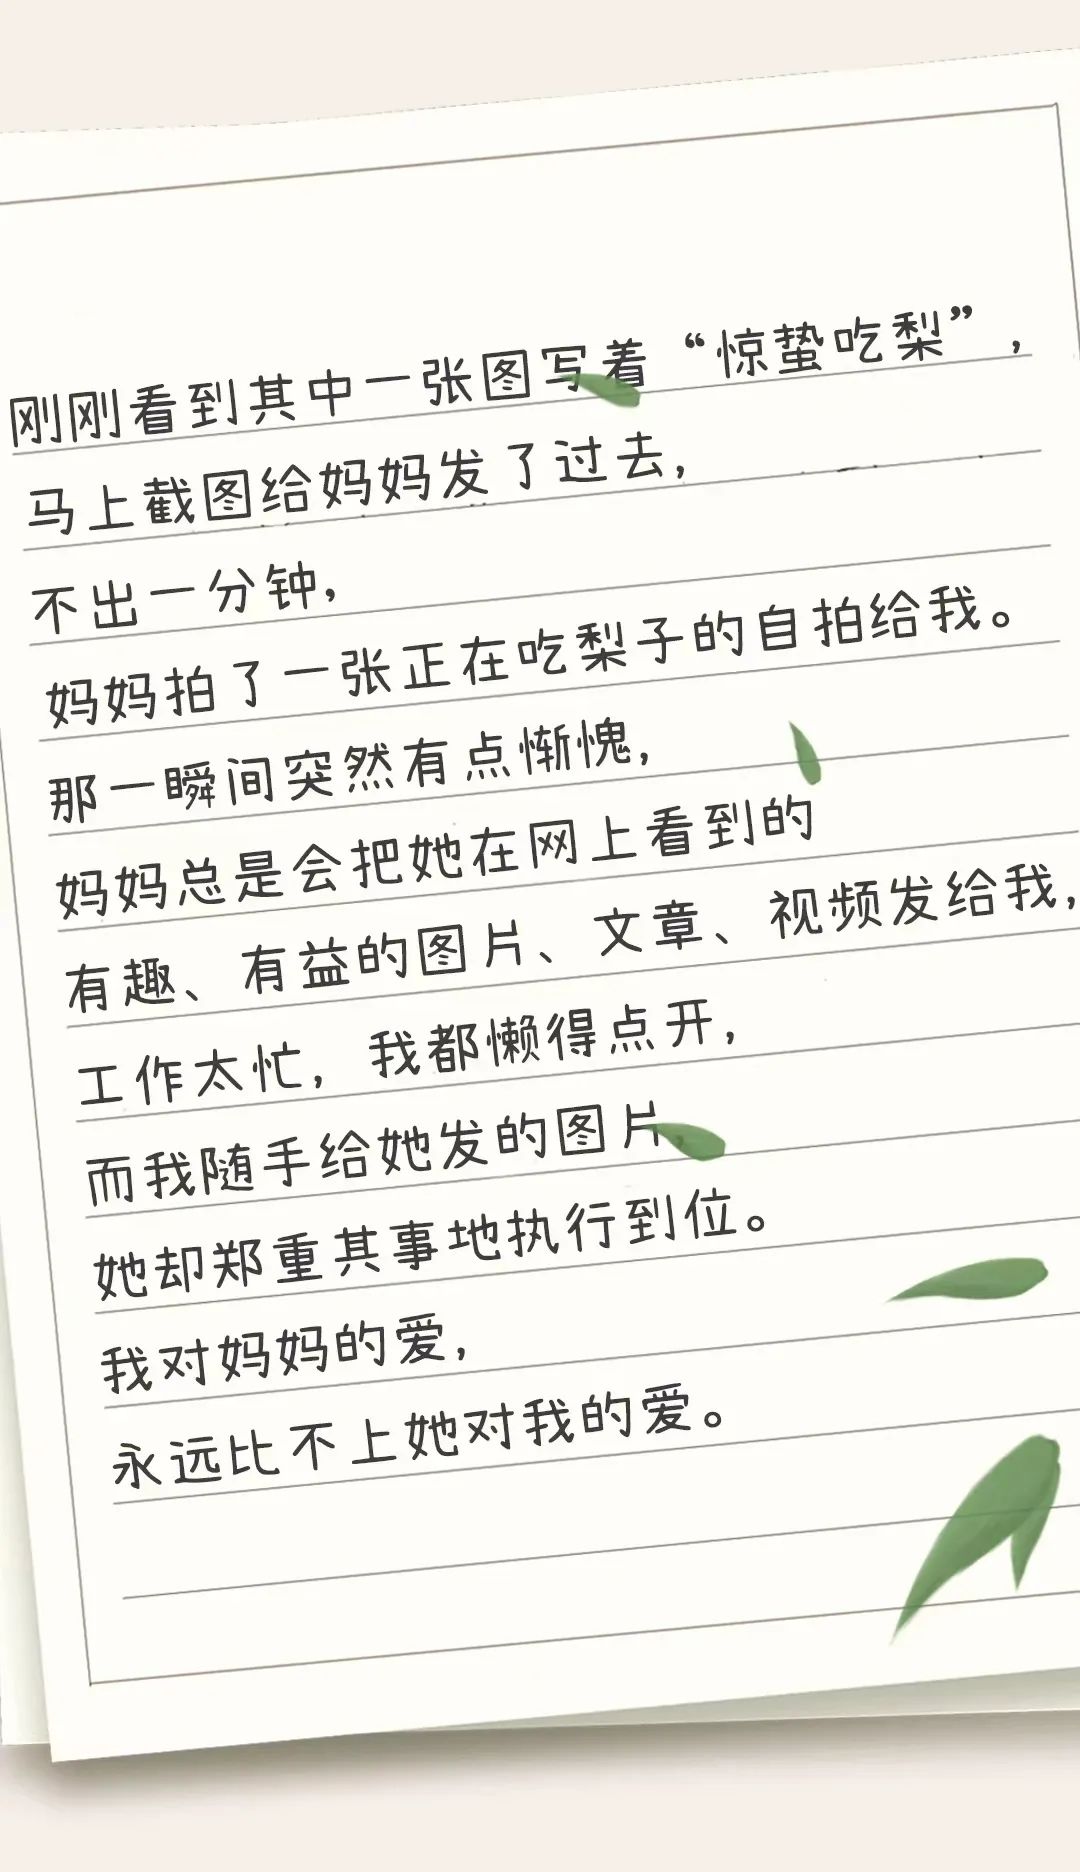 刚刚看到其中一张图写着“惊蛰吃梨”，
马上截图给妈妈发了过去，
不出一分钟，
妈妈拍了一张正在吃梨子的自拍给我。
那一瞬间突然有点惭愧，
妈妈总是会把她在网上看到的
有趣、有益的图片、文章、视频发给我，
工作太忙，我都懒得点开，
而我随手给她发的图片
她却郑重其事地执行到位。
我对妈妈的爱，
永远比不上她对我的爱。